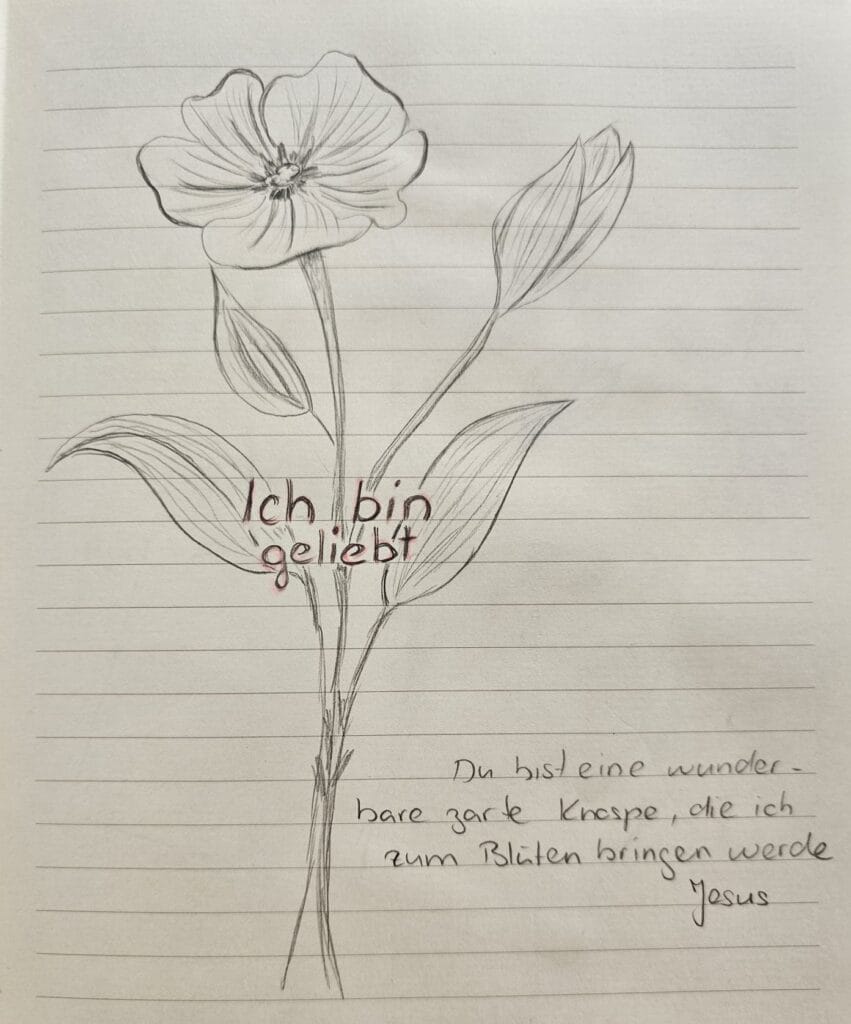 Ich bin
geliebt
Du bist eine wunder-
bare zarte Knospe, die ich
zum Blüten bringen werde
Jesus